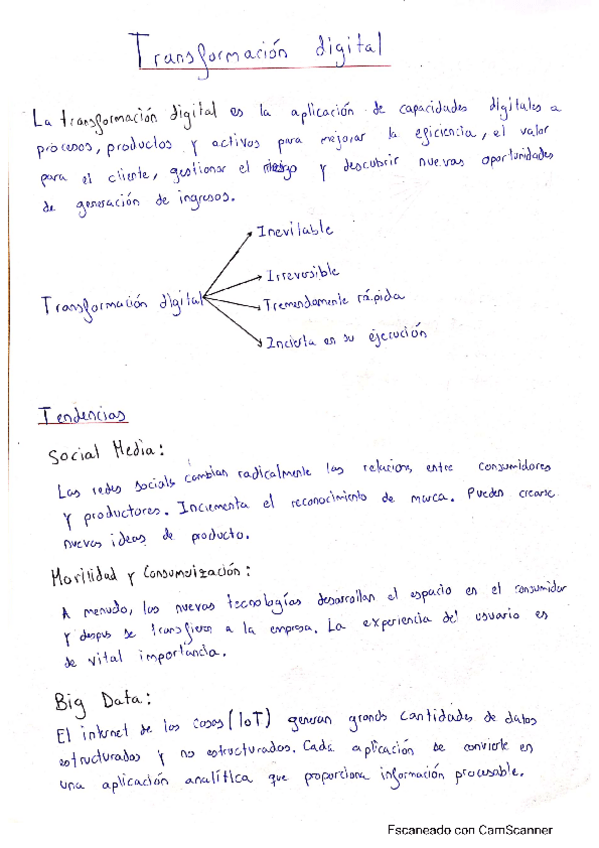 Transformación digital
La transformación digital es la aplicación de capacidades digitales a
procesos, productos y activos para mejorar la eficiencia, el valor
para el cliente, gestionar el riesgo y descubrir nuevas oportunidades
de generación de ingresos.
Transformación digital
Inevitable
Irreversible
Tremendamente rápida
Incierta en su éjecución
Tendencias
Social Media:
Las redes socials cambian radicalmente las relacions entre consumidores
y productores. Incrementa el reconocimiento de marca. Pueden crearse
nuevas ideas de producto.
Movilidad y Consumerización:
A menudo, las nuevas tecnologías desarrollan el espacio en el consumidor
y despus se transfieren a la empresa. La experiencia del usuario es
de vital importancia.
Big Data:
El internet de las cosas (IoT) generan grands cantidades de datos
estructurados y no estructurados. Cada aplicación se convierte en
una aplicación analítica que proporciona información procesable.
Escaneado con CamScanner